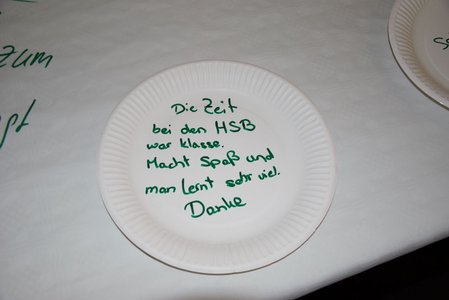 zum
Die Zeit
bei den HSB
war klasse.
Macht Spaß und
man Lernt sehr viel.
Danke